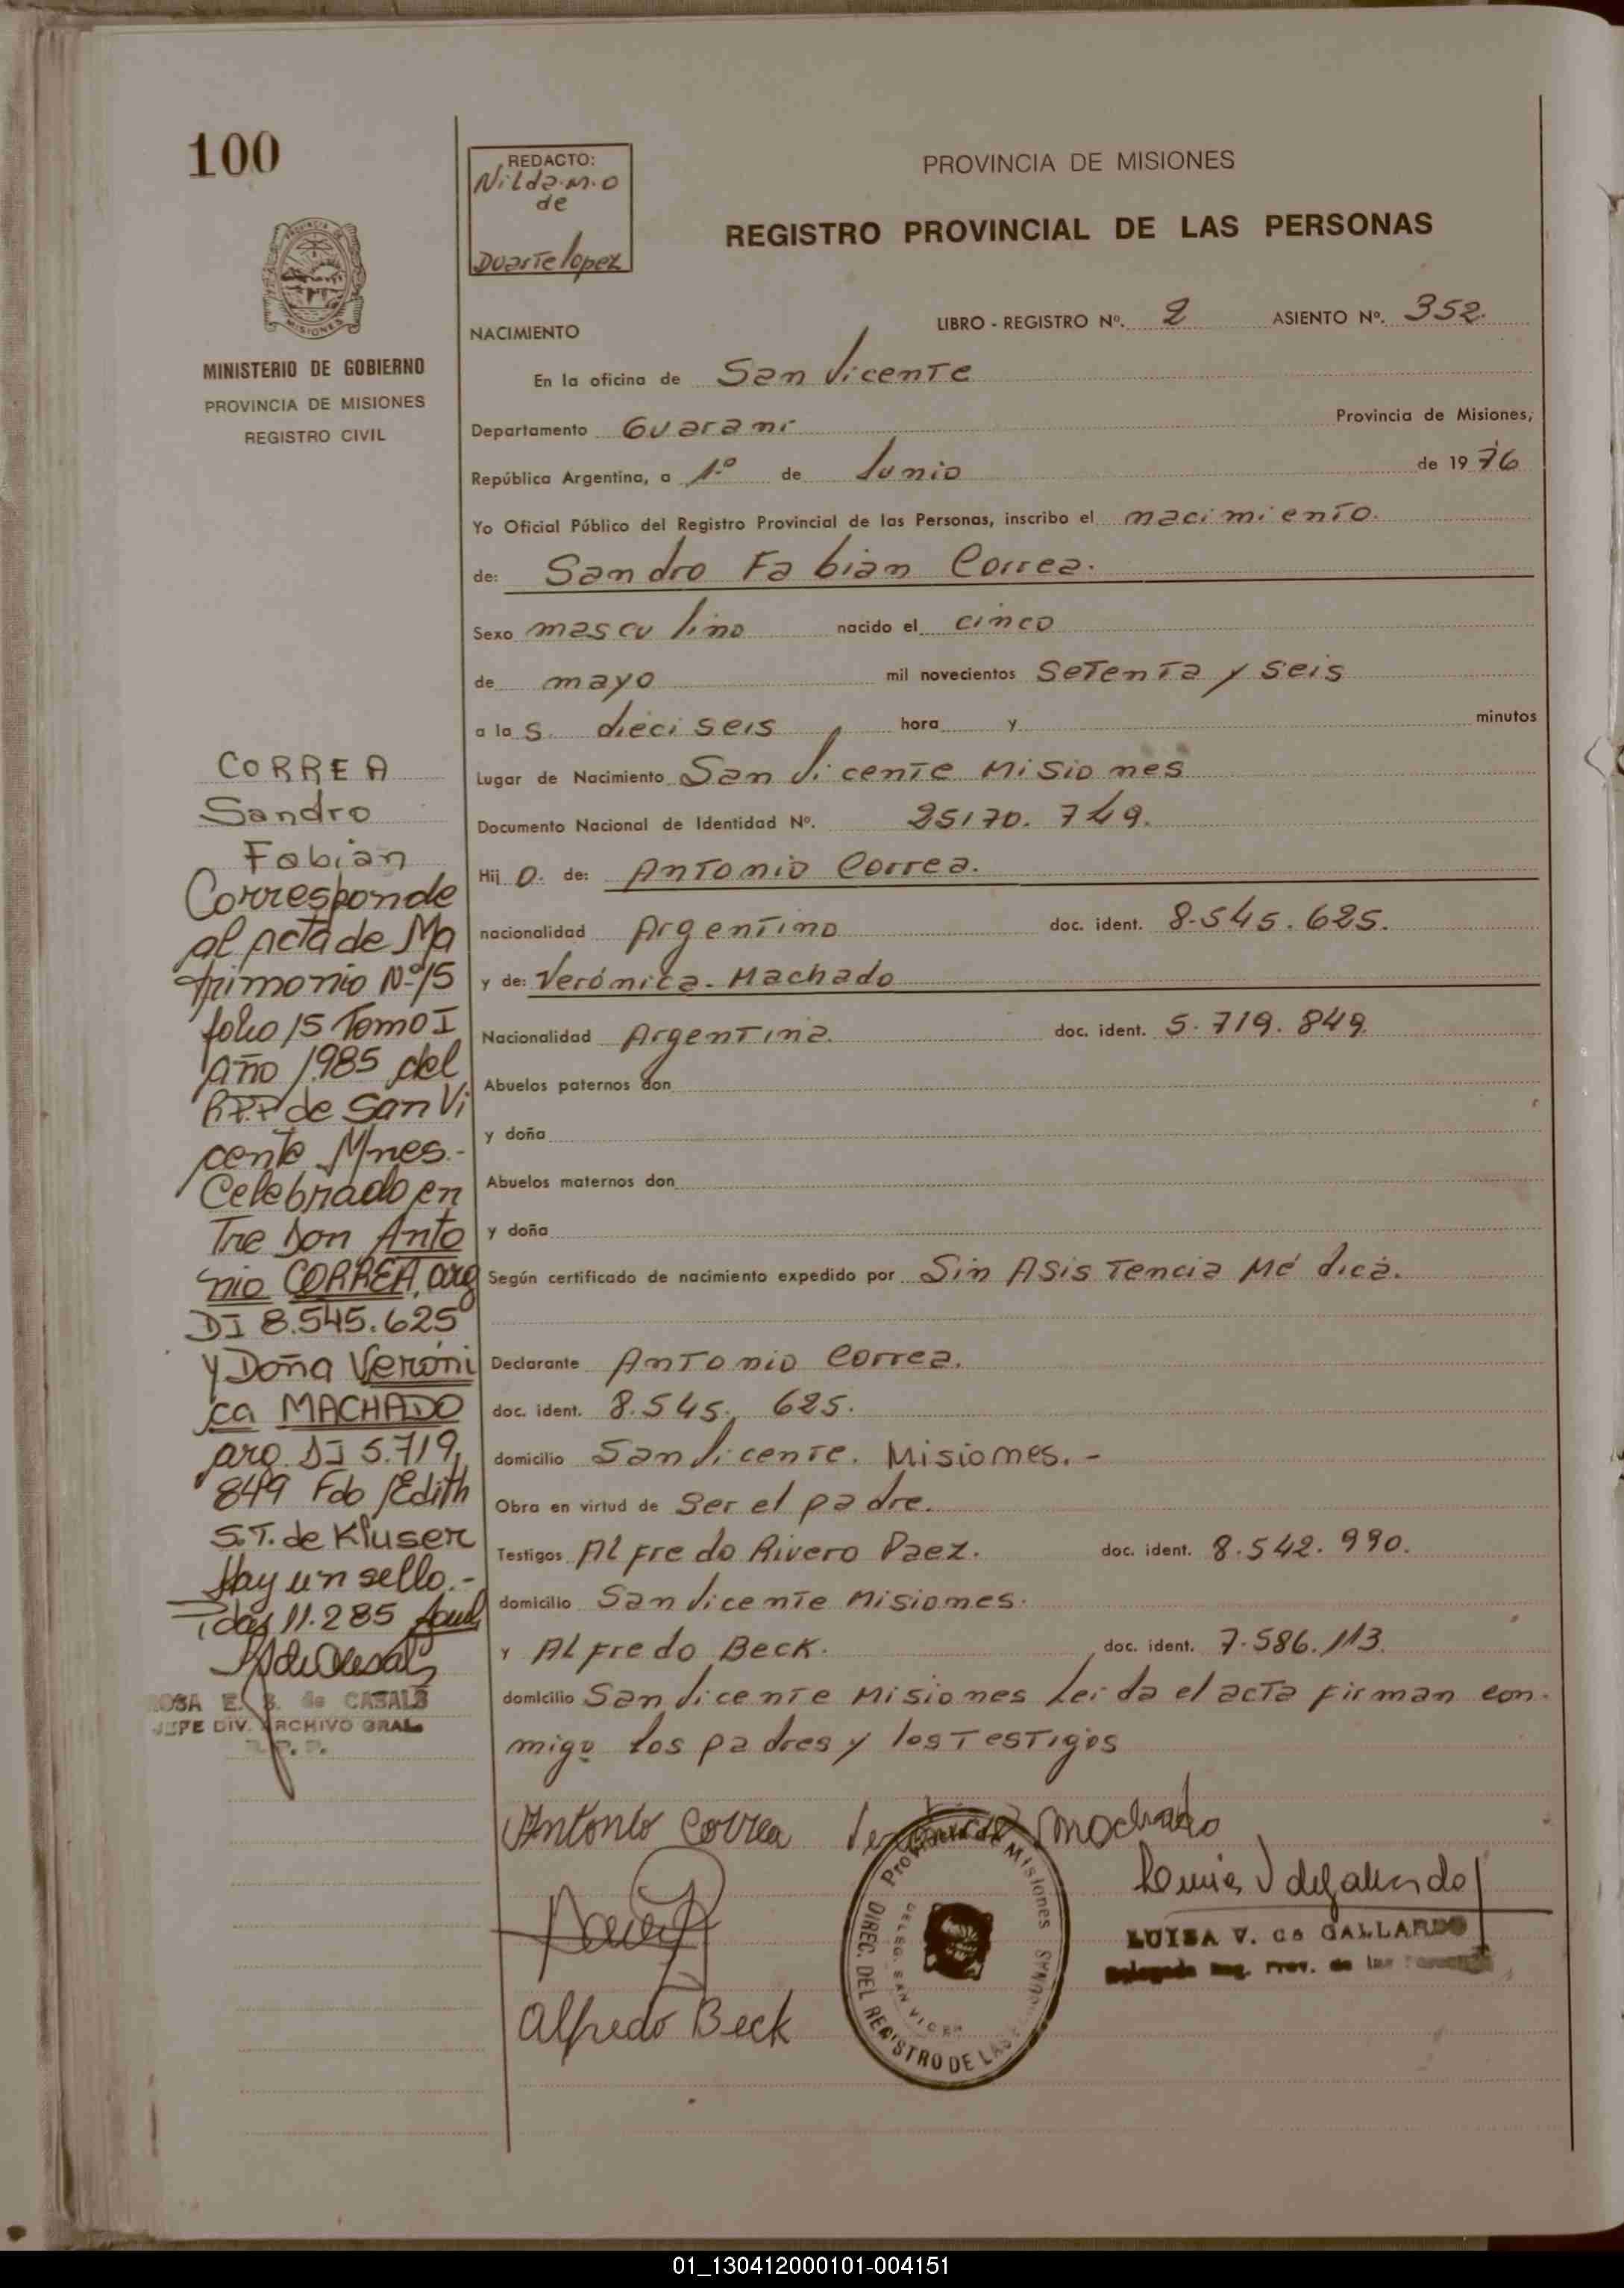 100
REDACTO:
Nilda.M.O
de
Duarte lopez
PROVINCIA DE MISIONES
REGISTRO PROVINCIAL DE LAS PERSONAS
MISIONES
MINISTERIO DE GOBIERNO
PROVINCIA DE MISIONES
REGISTRO CIVIL
NACIMIENTO
LIBRO - REGISTRO Nº. 2 ASIENTO Nº. 352.
En la oficina de San Vicente
Departamento Guarani Provincia de Misiones;
República Argentina, a 1º de Junio de 1976
Yo Oficial Público del Registro Provincial de las Personas, inscribo el nacimiento.
de: Sandro Fabian Correa.
Sexo masculino nacido el cinco
de mayo mil novecientos setenta y seis
a las dieciseis hora y minutos
Lugar de Nacimiento San Vicente Misiones
Documento Nacional de Identidad Nº. 25170.749.
Hij o. de: Antonio Correa.
nacionalidad Argentino doc. ident. 8.545.625.
y de: Verónica. Machado
Nacionalidad Argentina. doc. ident. 5.719.849.
Abuelos paternos don
y doña
Abuelos maternos don
y doña
Según certificado de nacimiento expedido por Sin Asistencia Médica.
Declarante Antonio Correa.
doc. ident. 8.545.625.
domicilio San Vicente. Misiones.-
Obra en virtud de ser el padre.
Testigos Alfredo Rivero Paez. doc. ident. 8.542.990.
domicilio San Vicente Misiones.
y Alfredo Beck. doc. ident. 7.586.113.
domicilio San Vicente Misiones Leida el acta firman con-
migo los padres y los Testigos
CORREA
Sandro
Fabian
Corresponde
al Acta de Ma
trimonio Nº 15
folio 15 Tomo I
Año 1985 del
R.P.P de San Vi
cente Mnes.-
Celebrado en
Tre Don Anto
nio CORREA, arg
DI 8.545.625
y Doña Veroni
ca MACHADO
arg. DI 5.719.
849 Fdo Edith
S.T. de Kluser
Hay un sello.-
ROSA E. S. de CASALS
JEFE DIV. ARCHIVO GRAL.
R.P.P.
Antonio Correa Veronica Machado
Luisa V de Gallardo
LUISA V. de GALLARDO
Delegada Reg. Prov. de las Personas
Alfredo Beck
Provincia de Misiones
DIREC. DEL REGISTRO DE LAS PERSONAS
DELEG. SAN VICEN
01_130412000101-004151